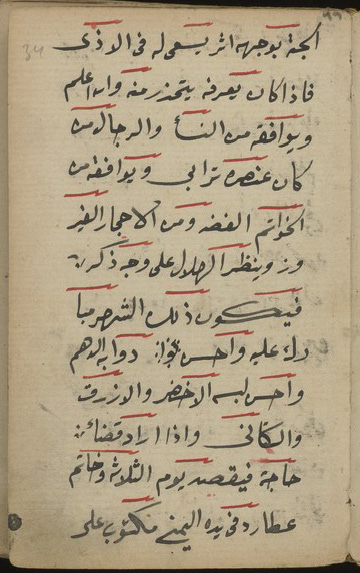 ٩٩
34
الجنة بوجهه اثر يسعى له فى الاذى
فاذا كان يعرفه يتحذر منه والله اعلم
ويوافقه من النسأ والرجال من
كان عنصره ترابي ويوافقه من
الخواتم الفضه ومن الاحجار الفير
وز وينظر الهلال على وجه ذكر
فيكون ذلك الشهر مبا
رك عليه واحسن دوابه الادهم
واحسن لبسه الاخضر والازرق
والكانى واذا اراد قضاء
حاجة فيقصد يوم الثلاثة وخاتم
عطارد فى يده اليمنى مكتوب على